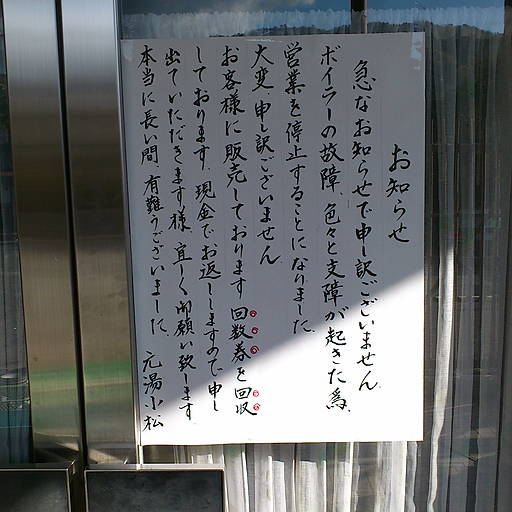 お知らせ
急なお知らせで申し訳ございません
ボイラーの故障、色々と支障が起きた為、
営業を停止することになりました。
大変、申し訳ございません
お客様に販売しております 回数券を回収
しております。現金でお返ししますので、申し
出ていただきます様、宜しく御願い致します
本当に長い間、有難うございました。 元湯小松